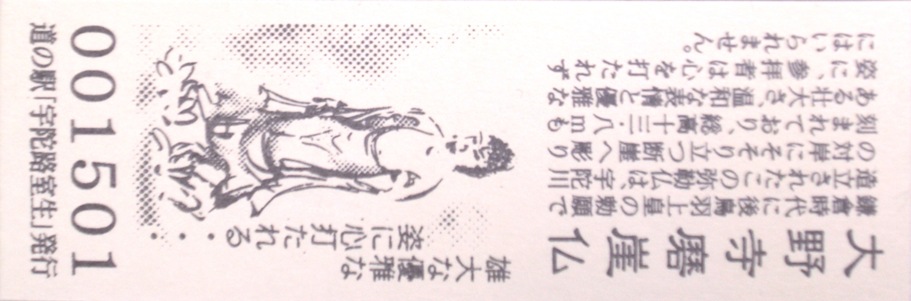 大野寺磨崖仏
鎌倉時代に後鳥羽上皇の勅願で
造立されたこの弥勒仏は、宇陀川
の対岸にそそり立つ断崖へ彫り
刻まれており、総高十三・八mも
ある壮大さ、温和な表情と優雅な
姿に、参拝者は心を打たれず
にはいられません。
雄大な優雅な
姿に心打たれる・・・
001501
道の駅「宇陀路室生」発行